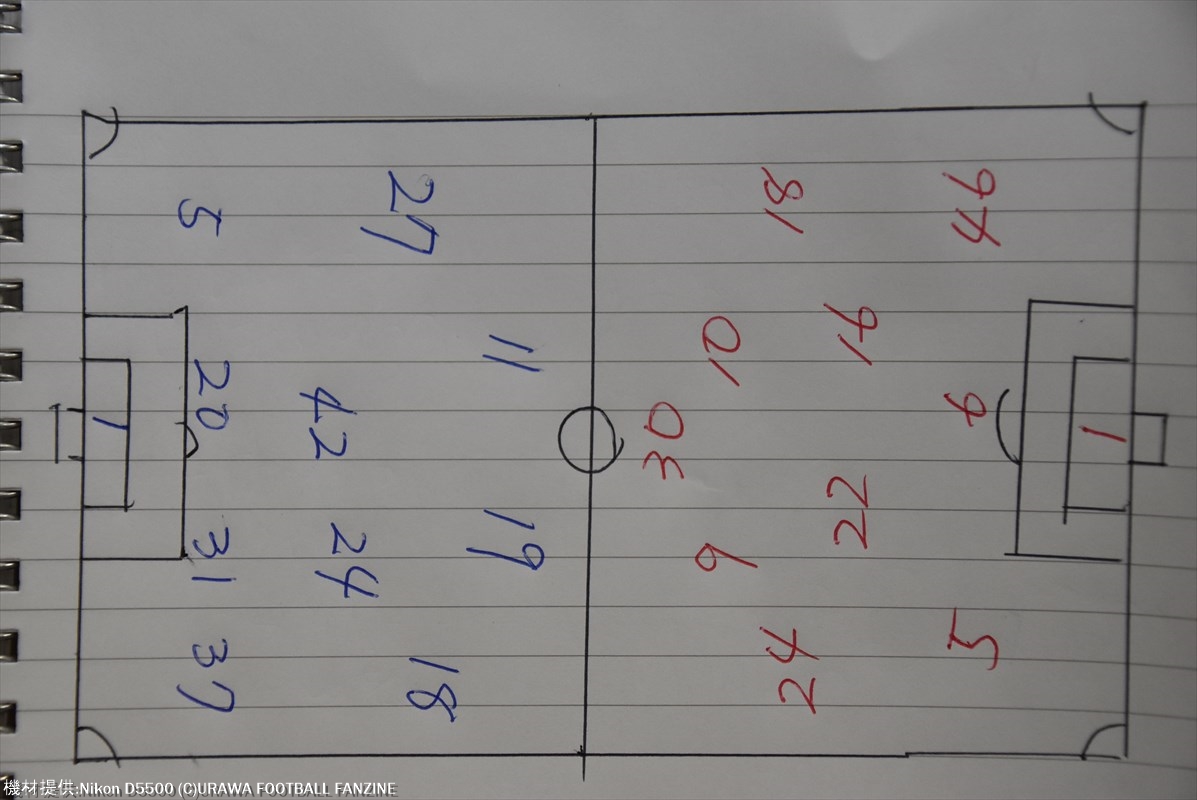 5
27
20
42
11
1
31
24
19
37
18
18
46
10
16
30
6
1
9
22
24
5
機材提供:Nikon D5500 (C)URAWA FOOTBALL FANZINE